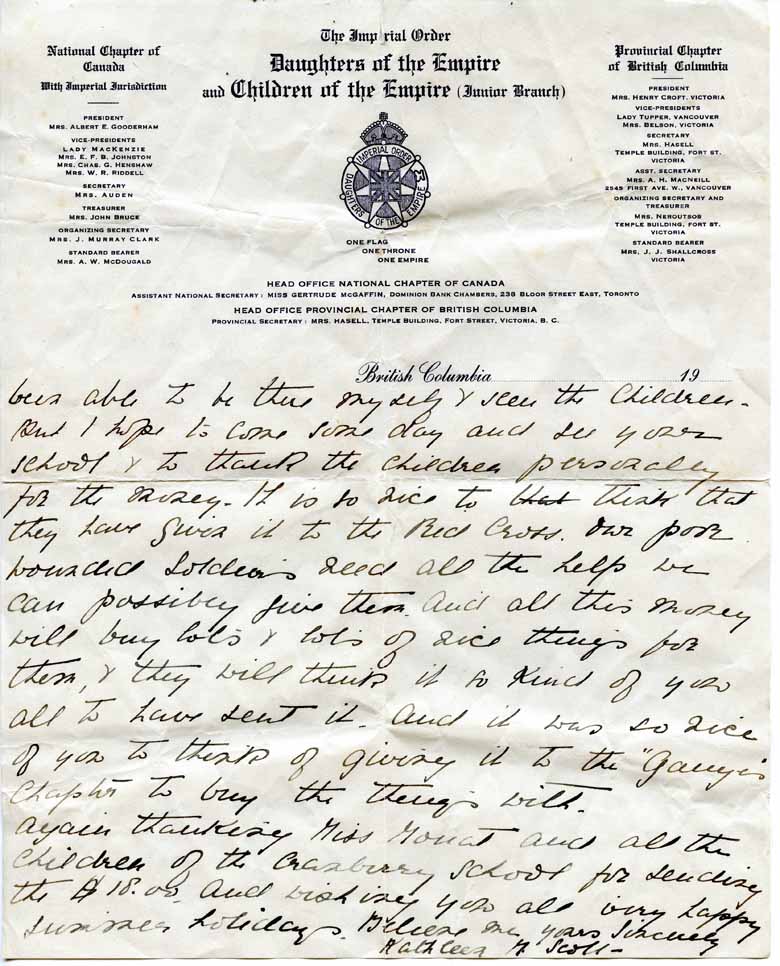 The Imperial Order
Daughters of the Empire
and Children of the Empire (Junior Branch)
National Chapter of
Canada
With Imperial Jurisdiction
PRESIDENT
MRS. ALBERT E. GOODERHAM
VICE-PRESIDENTS
LADY MACKENZIE
MRS. E. F. B. JOHNSTON
MRS. CHAS. G. HENSHAW
MRS. W. R. RIDDELL
SECRETARY
MRS. AUDEN
TREASURER
MRS. JOHN BRUCE
ORGANIZING SECRETARY
MRS. J. MURRAY CLARK
STANDARD BEARER
MRS. A. W. MCDOUGALD
IMPERIAL ORDER
DAUGHTERS OF THE EMPIRE
ONE FLAG
ONE THRONE
ONE EMPIRE
Provincial Chapter
of British Columbia
PRESIDENT
MRS. HENRY CROFT, VICTORIA
VICE-PRESIDENTS
LADY TUPPER, VANCOUVER
MRS. BELSON, VICTORIA
SECRETARY
MRS. HASELL
TEMPLE BUILDING, FORT ST.
VICTORIA
ASST. SECRETARY
MRS. A. H. MACNEILL
2545 FIRST AVE. W., VANCOUVER
ORGANIZING SECRETARY AND
TREASURER
MRS. NEROUTSOS
TEMPLE BUILDING, FORT ST.
VICTORIA
STANDARD BEARER
MRS. J. J. SHALLCROSS
VICTORIA
HEAD OFFICE NATIONAL CHAPTER OF CANADA
ASSISTANT NATIONAL SECRETARY: MISS GERTRUDE MCGAFFIN, DOMINION BANK CHAMBERS, 238 BLOOR STREET EAST, TORONTO
HEAD OFFICE PROVINCIAL CHAPTER OF BRITISH COLUMBIA
PROVINCIAL SECRETARY: MRS. HASELL, TEMPLE BUILDING, FORT STREET, VICTORIA, B. C.
British Columbia 19
been able to be there myself & seen the Children -
But I hope to come some day and see your
school & to thank the children personally
for the money. It is so nice to that think that
they have given it to the Red Cross. Our poor
wounded Soldiers need all the help we
can possibly give them. And all this money
will buy lots & lots of nice things for
them, & they will think it so kind of you
all to have sent it. And it was so nice
of you to think of giving it to the "Ganges
Chapter to buy the things with.
Again thanking Miss Mouat and all the
Children of the Cranberry School for sending
the $18.00. And wishing you all very happy
summer holidays. Believe me yours Sincerely
Kathleen F Scott -